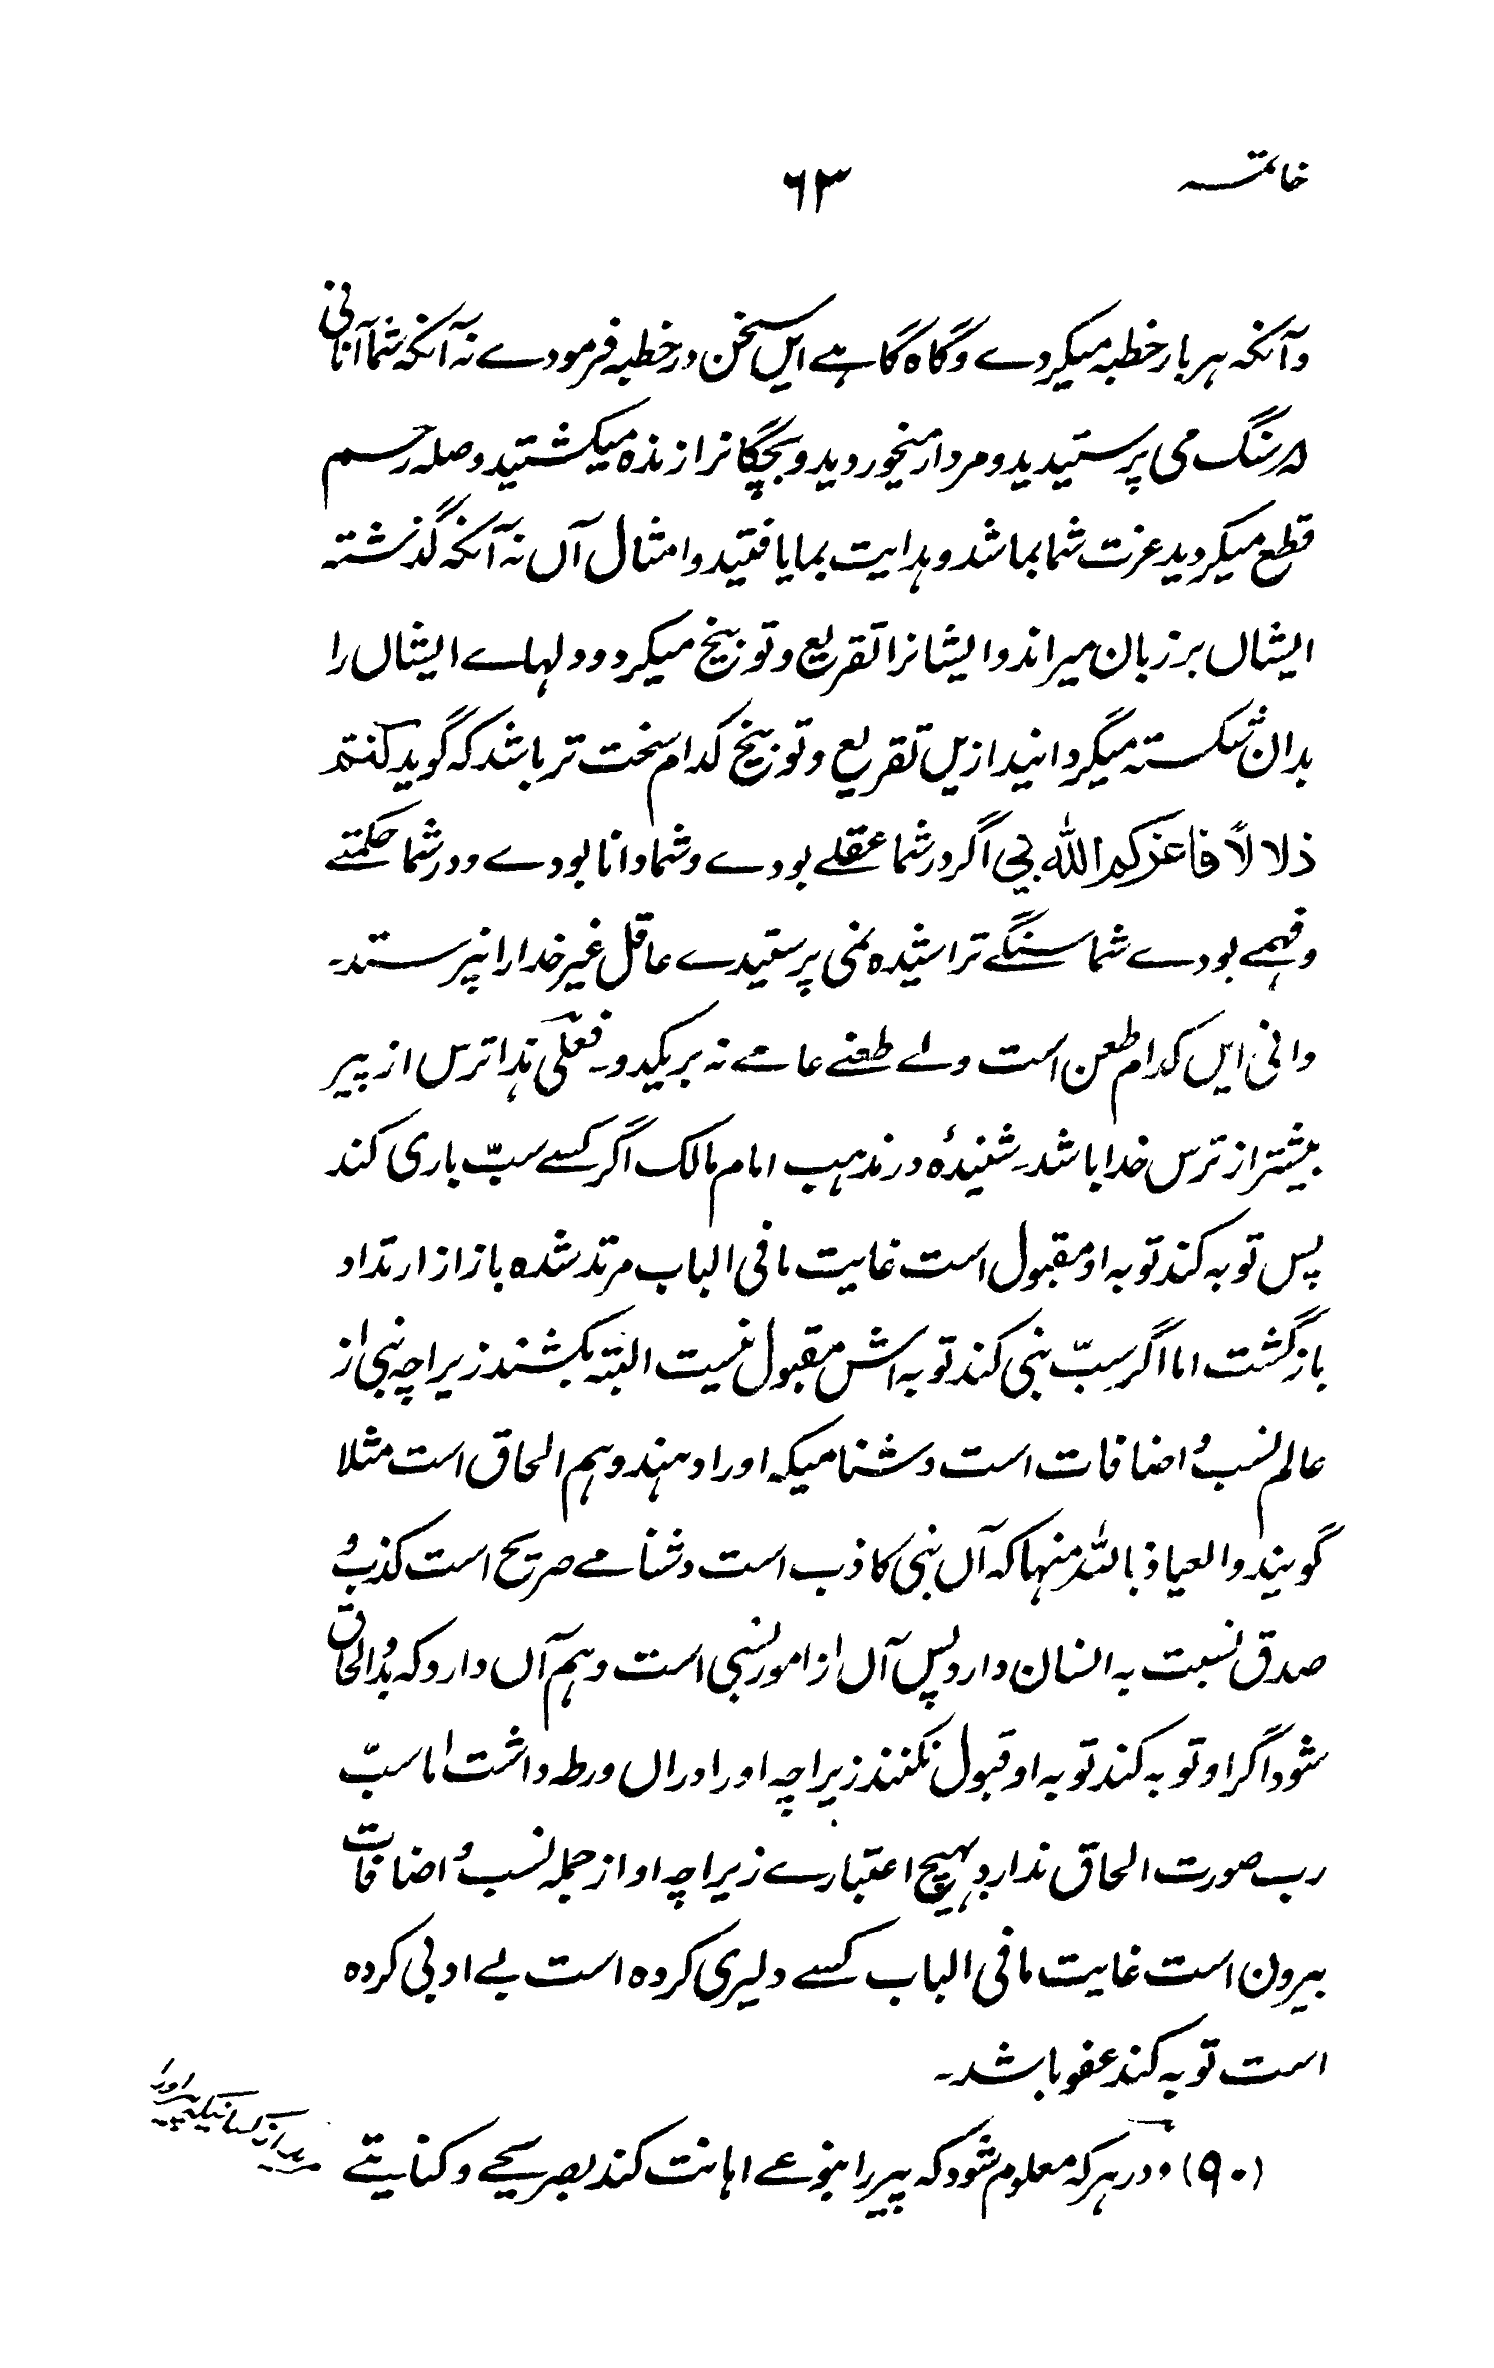 خاتمہ
٦٣
وآنکہ ہر بار خطبہ میکردے وگاہ گاہے ایں سخن در خطبہ فرمودے نہ آنکہ شما آنانی
کہ سنگ می پرستیدید و مردار میخوردید و بچگانرا زندہ میکشتید وصلہ رحم
قطع میکردید عزت شما بما شد و ہدایت بما یافتید و امثال آں نہ آنکہ گذشتہ
ایشاں بر زبان میراند و ایشانرا تقریع و توبیخ میکرد و دلہاے ایشاں را
بداں شکستہ میگردانید ازیں تقریع و توبیخ کدام سخت تر باشد کہ گوید کنتم
ذلالاً فاعزکم اللہ بی اگر در شما عقلے بودے و شما دانا بودے و در شما حکمتے
وفہمے بودے شما سنگے تراشیدہ نمی پرستیدے عاقل غیر خدا را نپرستد۔
دانی ایں کدام طعن است ولے طعنے عامے نہ بریکدو۔ فعلی ہذا ترس از پیر
بیشتر از ترس خدا باشد۔ شنیدۂ در مذہب امام مالک اگر کسے سبّ باری کند
پس توبہ کند توبہ او مقبول است غایت مافی الباب مرتد شدہ باز از ارتداد
بازگشت اما اگر سبّ نبی کند توبہ اش مقبول نیست البتہ بکشند زیرا چہ نبی از
عالم نسب و اضافات است دشنامیکہ اورا دہند وہم الحاق است مثلا
گویند والعیاذ باللہ منہا کہ آں نبی کاذب است دشنامے صریح است کذب و
صدق نسبت بہ انسان دارد پس آں از امور نسبی است وہم آں دارد کہ بدو الحاق
شود اگر او توبہ کند توبہ او قبول نکنند زیرا چہ اورا دراں ورطہ داشت اما سبّ
رب صورت الحاق ندارد بہیچ اعتبارے زیرا چہ او از جملہ نسب و اضافات
بیرون است غایت مافی الباب کسے دلیری کردہ است بے ادبی کردہ
است توبہ کند عفو باشد۔
(۹۰) و در ہر کہ معلوم شود کہ پیر را بنوعے اہانت کند بصریحے و کنایتے